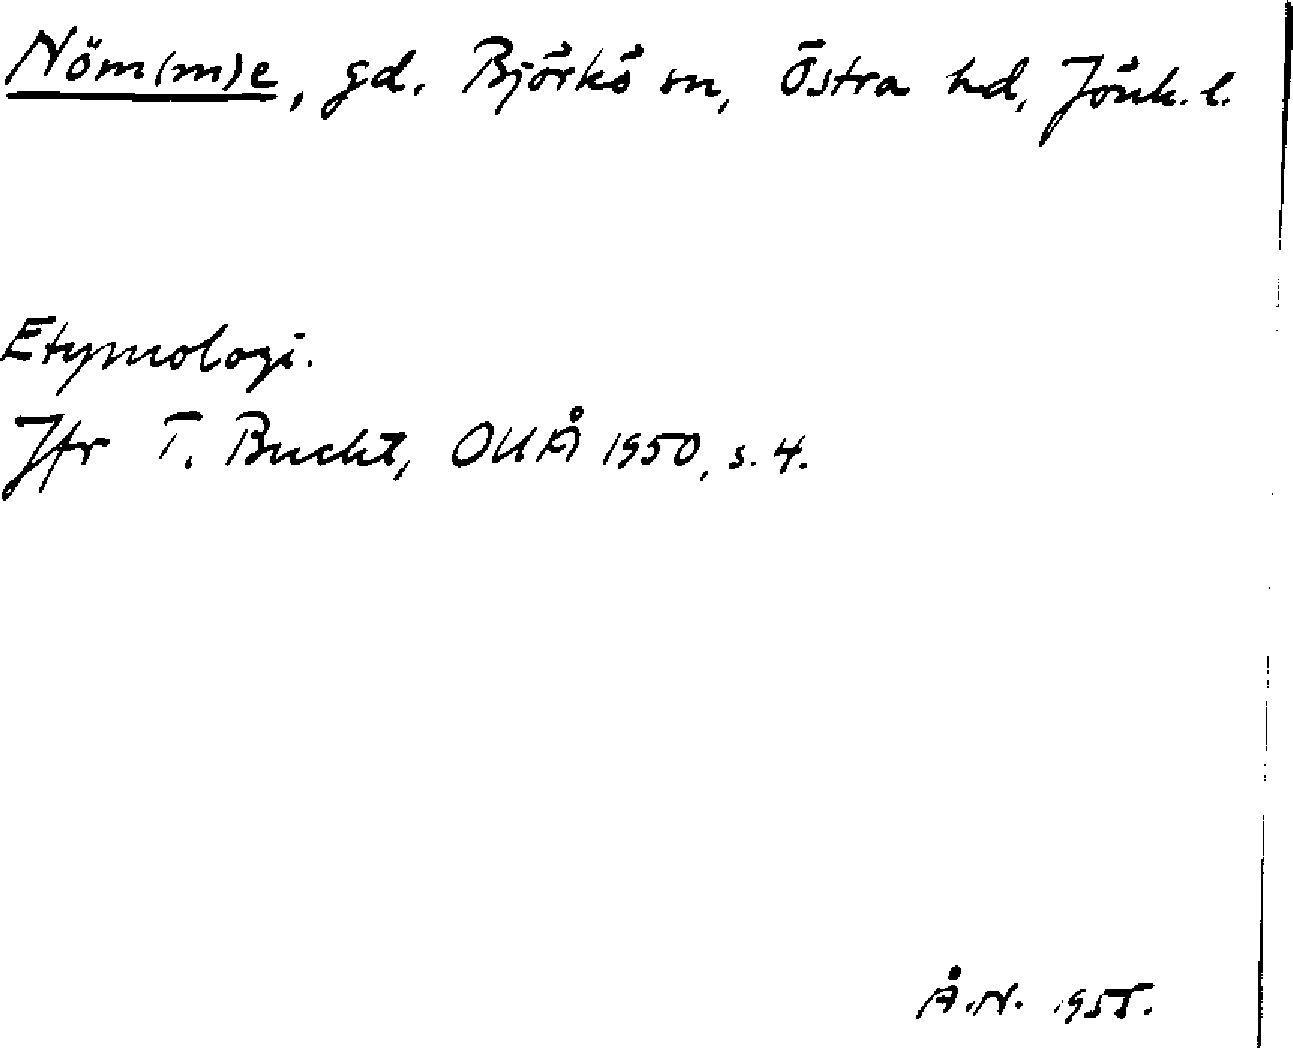 Nöm(m)e, gd. Björkö sn, Östra hd, Jönk. l.
Etymologi.
Jfr T. Bucht, OUÅ 1950, s. 4.
Å.N. 1955.